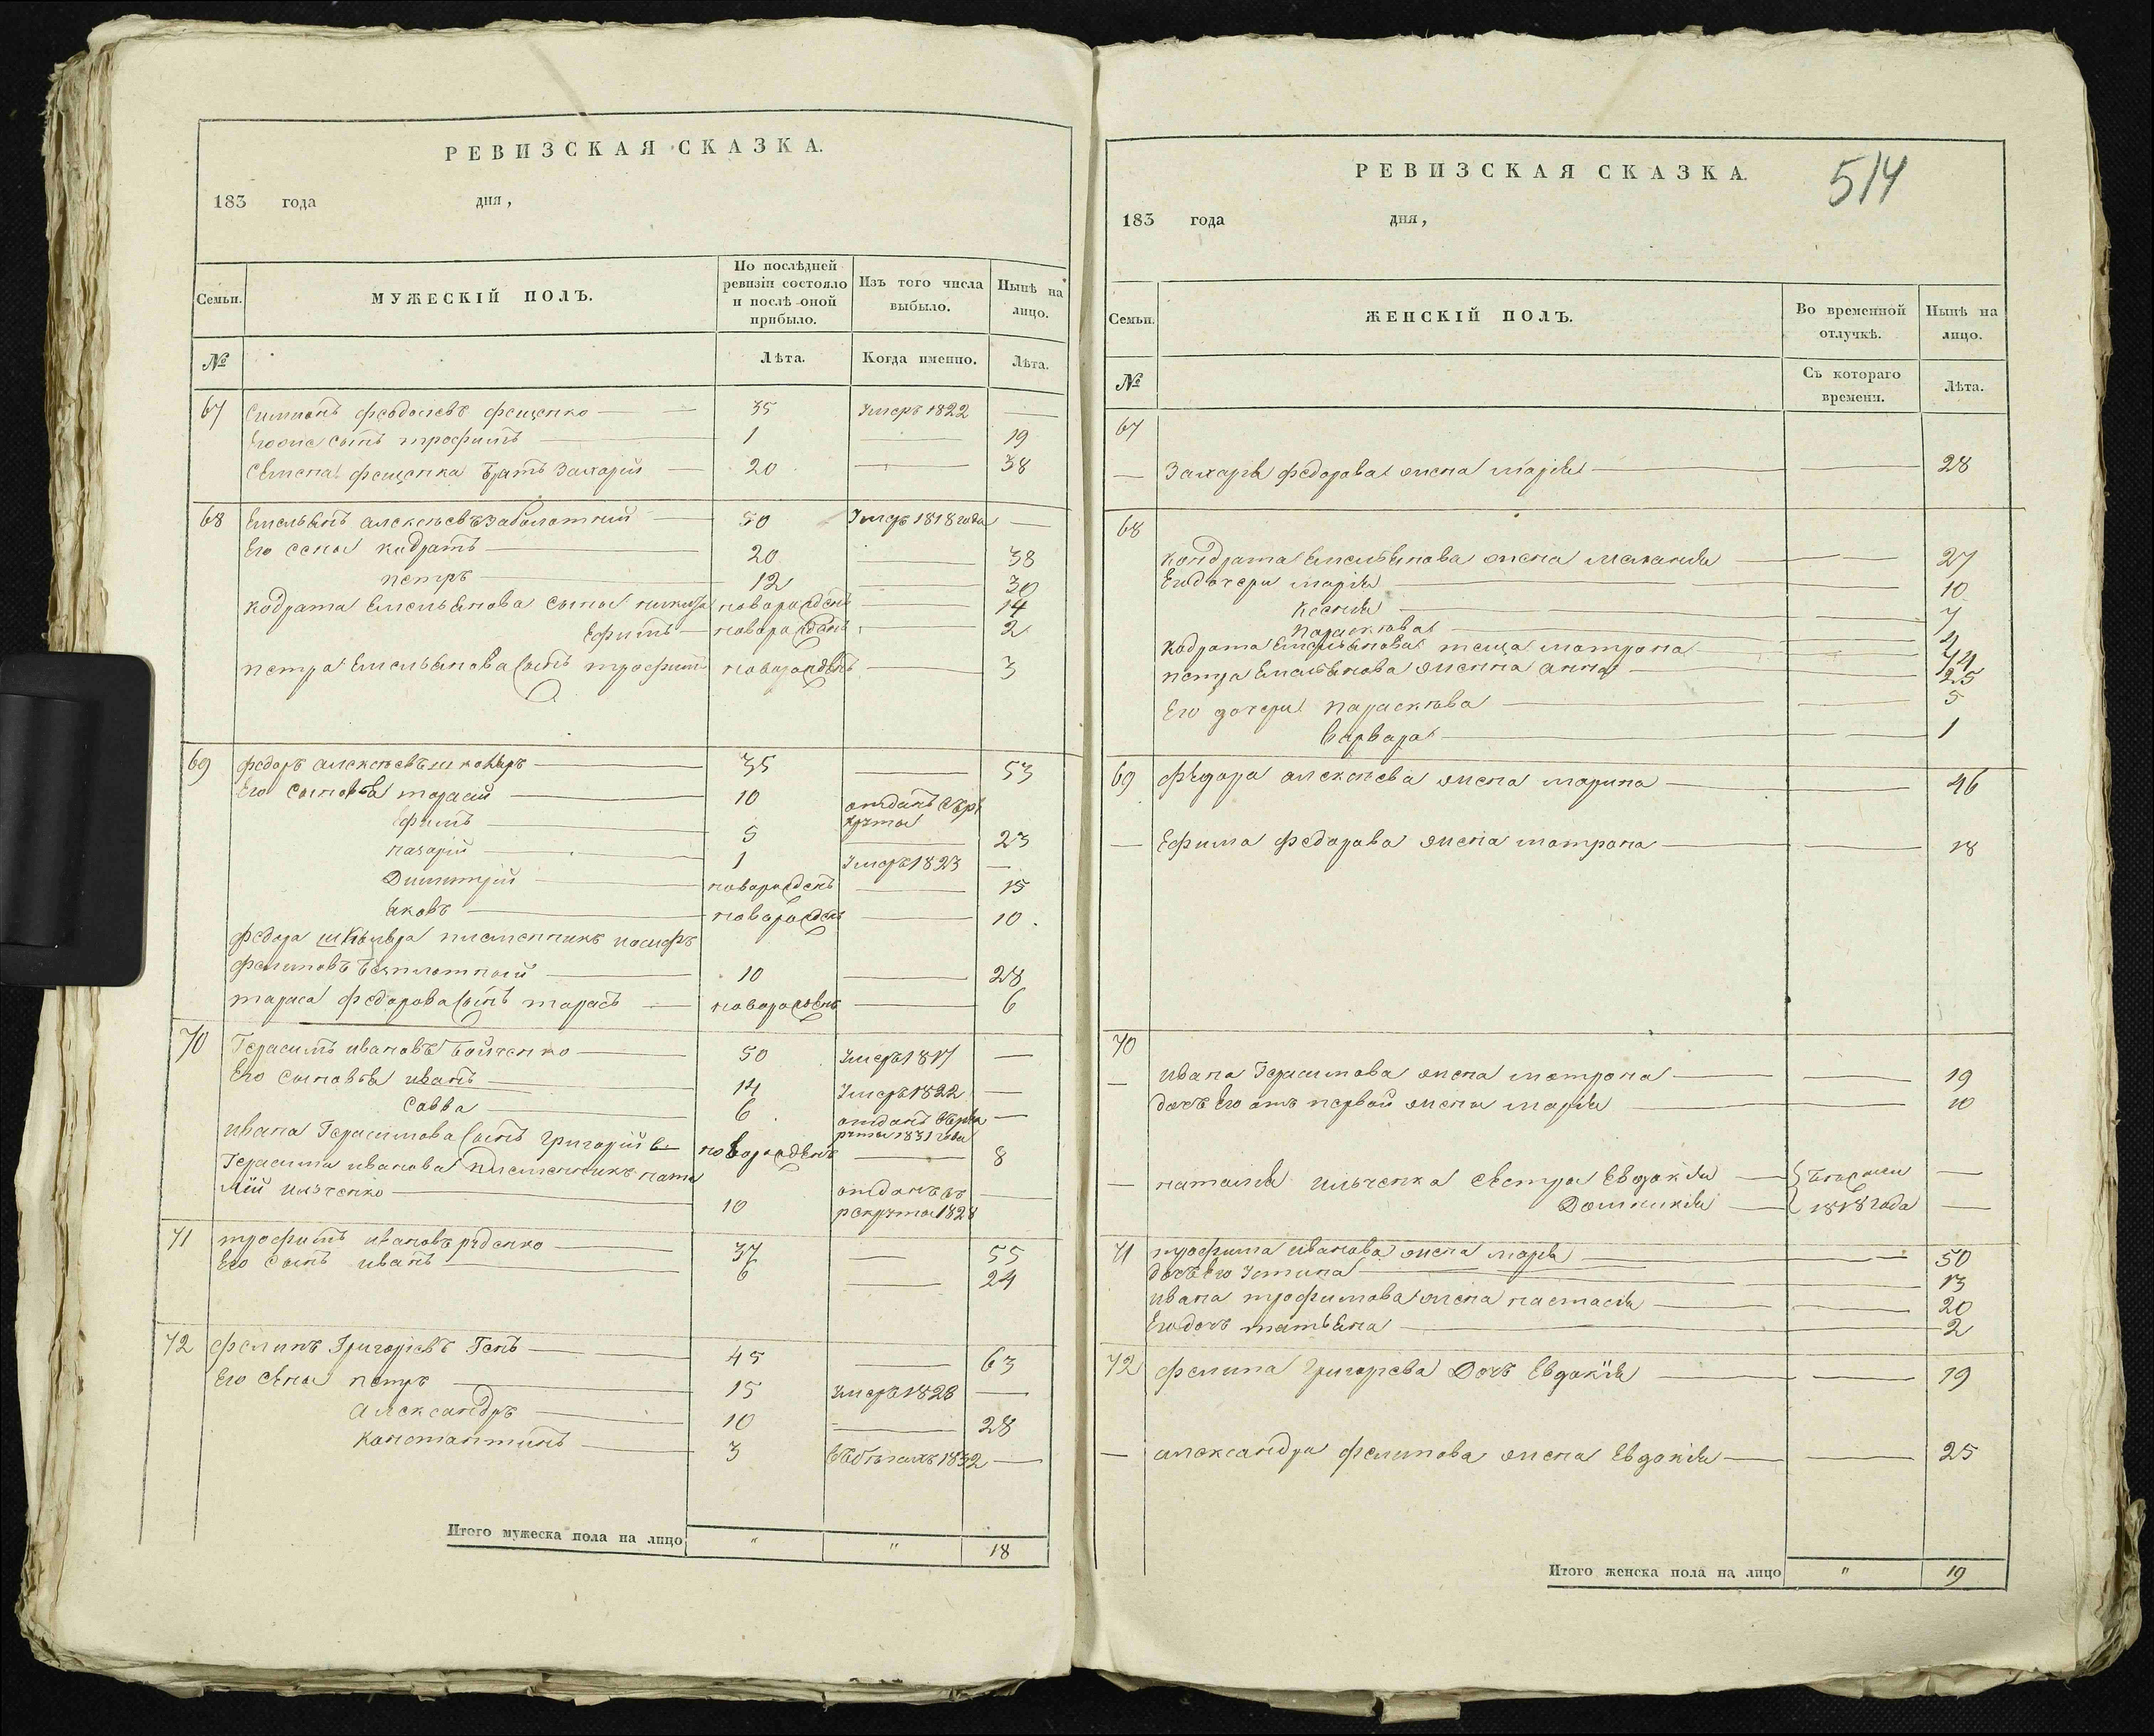 РЕВИЗСКАЯ СКАЗКА.
183 года дня,
Семьи. МУЖЕСКІЙ ПОЛЪ. По послѣдней ревизіи состояло и послѣ оной прибыло. Изъ того числа выбыло. Нынѣ на лицо.
№ Лѣта. Когда именно. Лѣта.
67 Симионъ федоаевъ фещенко 35 Умеръ 1822
Егоже сынъ трофимъ 1 19
Семена фещенка братъ Захарій 20 38
68 Емельянъ алексѣевъ заболотний 50 Умеръ 1818 года
Его сены кидратъ 20 38
петръ 12 30
кодрата Емельянова сыны никита новорожденъ 14
Ефимъ новорожденъ 2
петра Емельянова сынъ трофимъ новорожденъ 3
69 федоръ алексѣевъ шковыръ 35 53
Его сыновья тарасий 10 отданъ въ рекруты
Ефимъ 5 23
назарій 1 Умеръ 1823
Димитрій новорожденъ 15
яковъ новорожденъ 10
федора племенникъ иосифъ
фелиповъ безплотный 10 28
тараса федорова сынъ тарасъ новорожденъ 6
70 Герасимъ ивановъ Бойченко 50 Умеръ 1817
Его сыновья иванъ 14 Умеръ 1822
Савва 6 отданъ въ рекруты 1831 года
ивана Герасимова сынъ григорій новорожденъ 8
Герасима иванова племенникъ ната
лій ильченко 10 отданъ въ рекруты 1828
71 трофимъ ивановъ руденко 37 55
Его сынъ иванъ 6 24
72 фелипъ Григоріевъ Генъ 45 63
Его сены петръ 15 Умеръ 1826
Александръ 10 28
Константинъ 3 въ бѣгахъ 1832
Итого мужеска пола на лицо " " 18
РЕВИЗСКАЯ СКАЗКА.
514
183 года дня,
Семьи. ЖЕНСКІЙ ПОЛЪ. Во временной отлучкѣ. Нынѣ на лицо.
№ Съ котораго времени. Лѣта.
67
Захарія федорова жена марія 28
68
кондрата Емельянова жена маланія 27
Его дочери марія 10
ксенія 7
параскіова 4
кодрата Емельянова теща матрона 74
петра Емельянова женна анна 25
Его дочери параскіова 5
варвара 1
69 федора алексѣева жена марина 46
Ефима федорова жена матрона 18
70
ивана Герасимова жена мотрона 19
дочь Его отъ первой жены марія 10
наталія ильченка сестры Евдокія
Домникія 1818 года
71 трофима иванова жена марія 50
дочь Его Устина 13
ивана трофимова жена настасія 20
Его дочь татьяна 2
72 фелипа григорьева Дочь Евдокія 19
александра фелипова жена Евдокія 25
Итого женска пола на лицо " 19